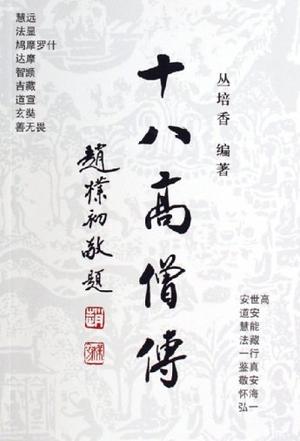 慧远
法显
鸠摩罗什
达摩
智𫖮
吉藏
道宣
玄奘
善无畏
十八高僧傳
丛培香 编著
趙樸初敬題
安世高
道安
慧能
法藏
一行
鉴真
敬安
怀海
弘一